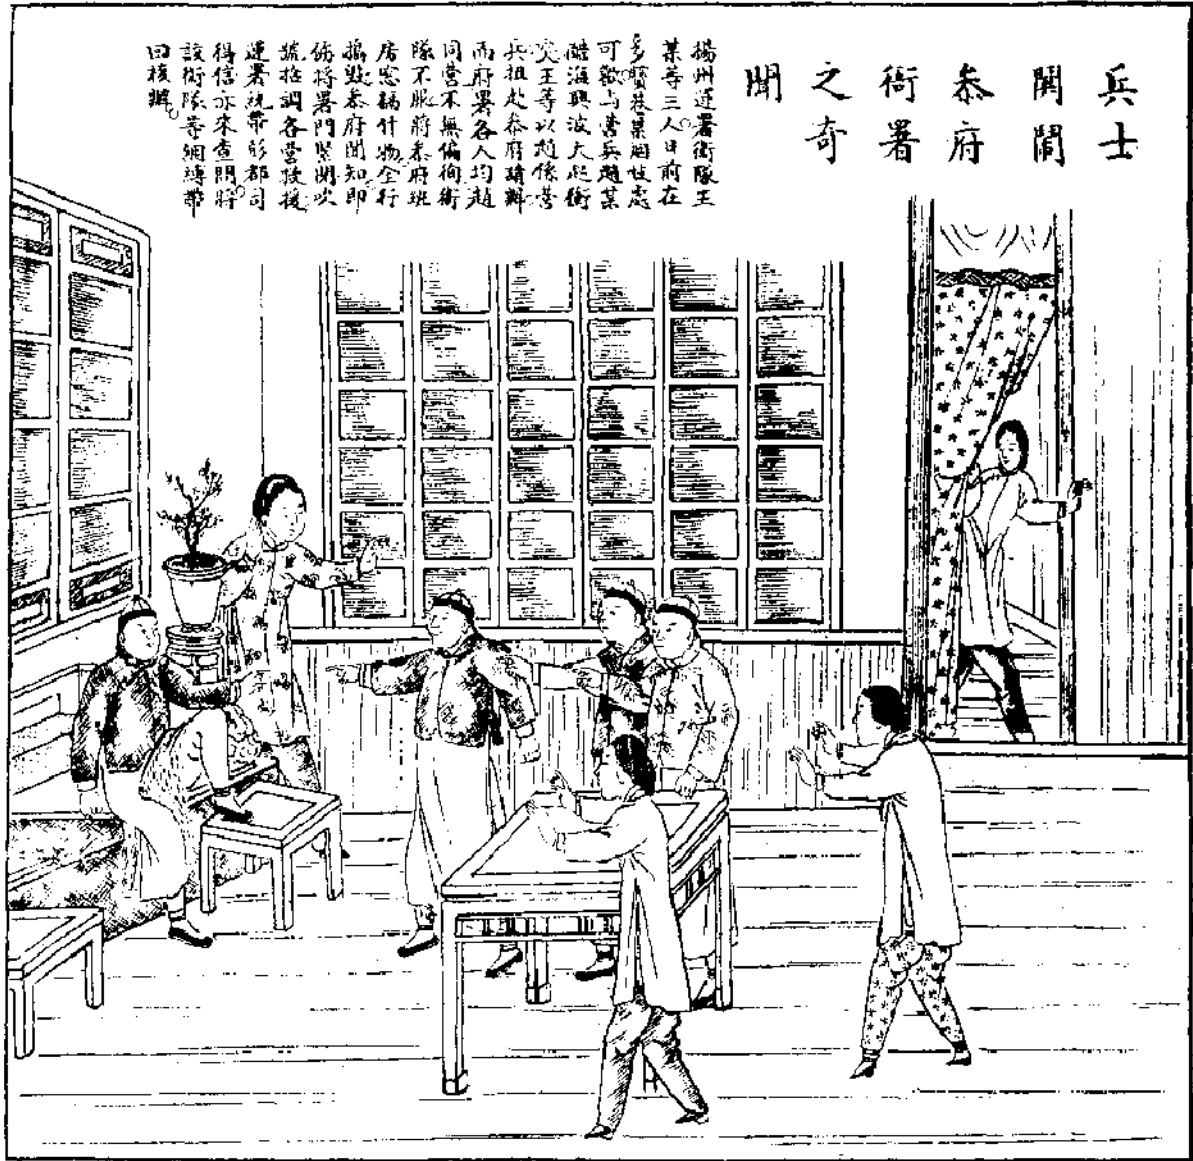 兵士
鬨鬧
叅府
衙署
之奇
聞
揚州運署衛隊王
某等三人日前在
多寶巷某妓處
歡与營兵趙某
醋海興波大起衝
突王等以趙係營
兵扭赴叅府請辦
而府署各人均趙
同營不無偏徇衛
隊不服將叅府班
房窓槅什物全行
搗毀叅府聞知即
飭將署門緊閉吹
號調各營救援
運署統帶彭都司
得信亦來查問將
該衛隊等綑縛帶
回核辦